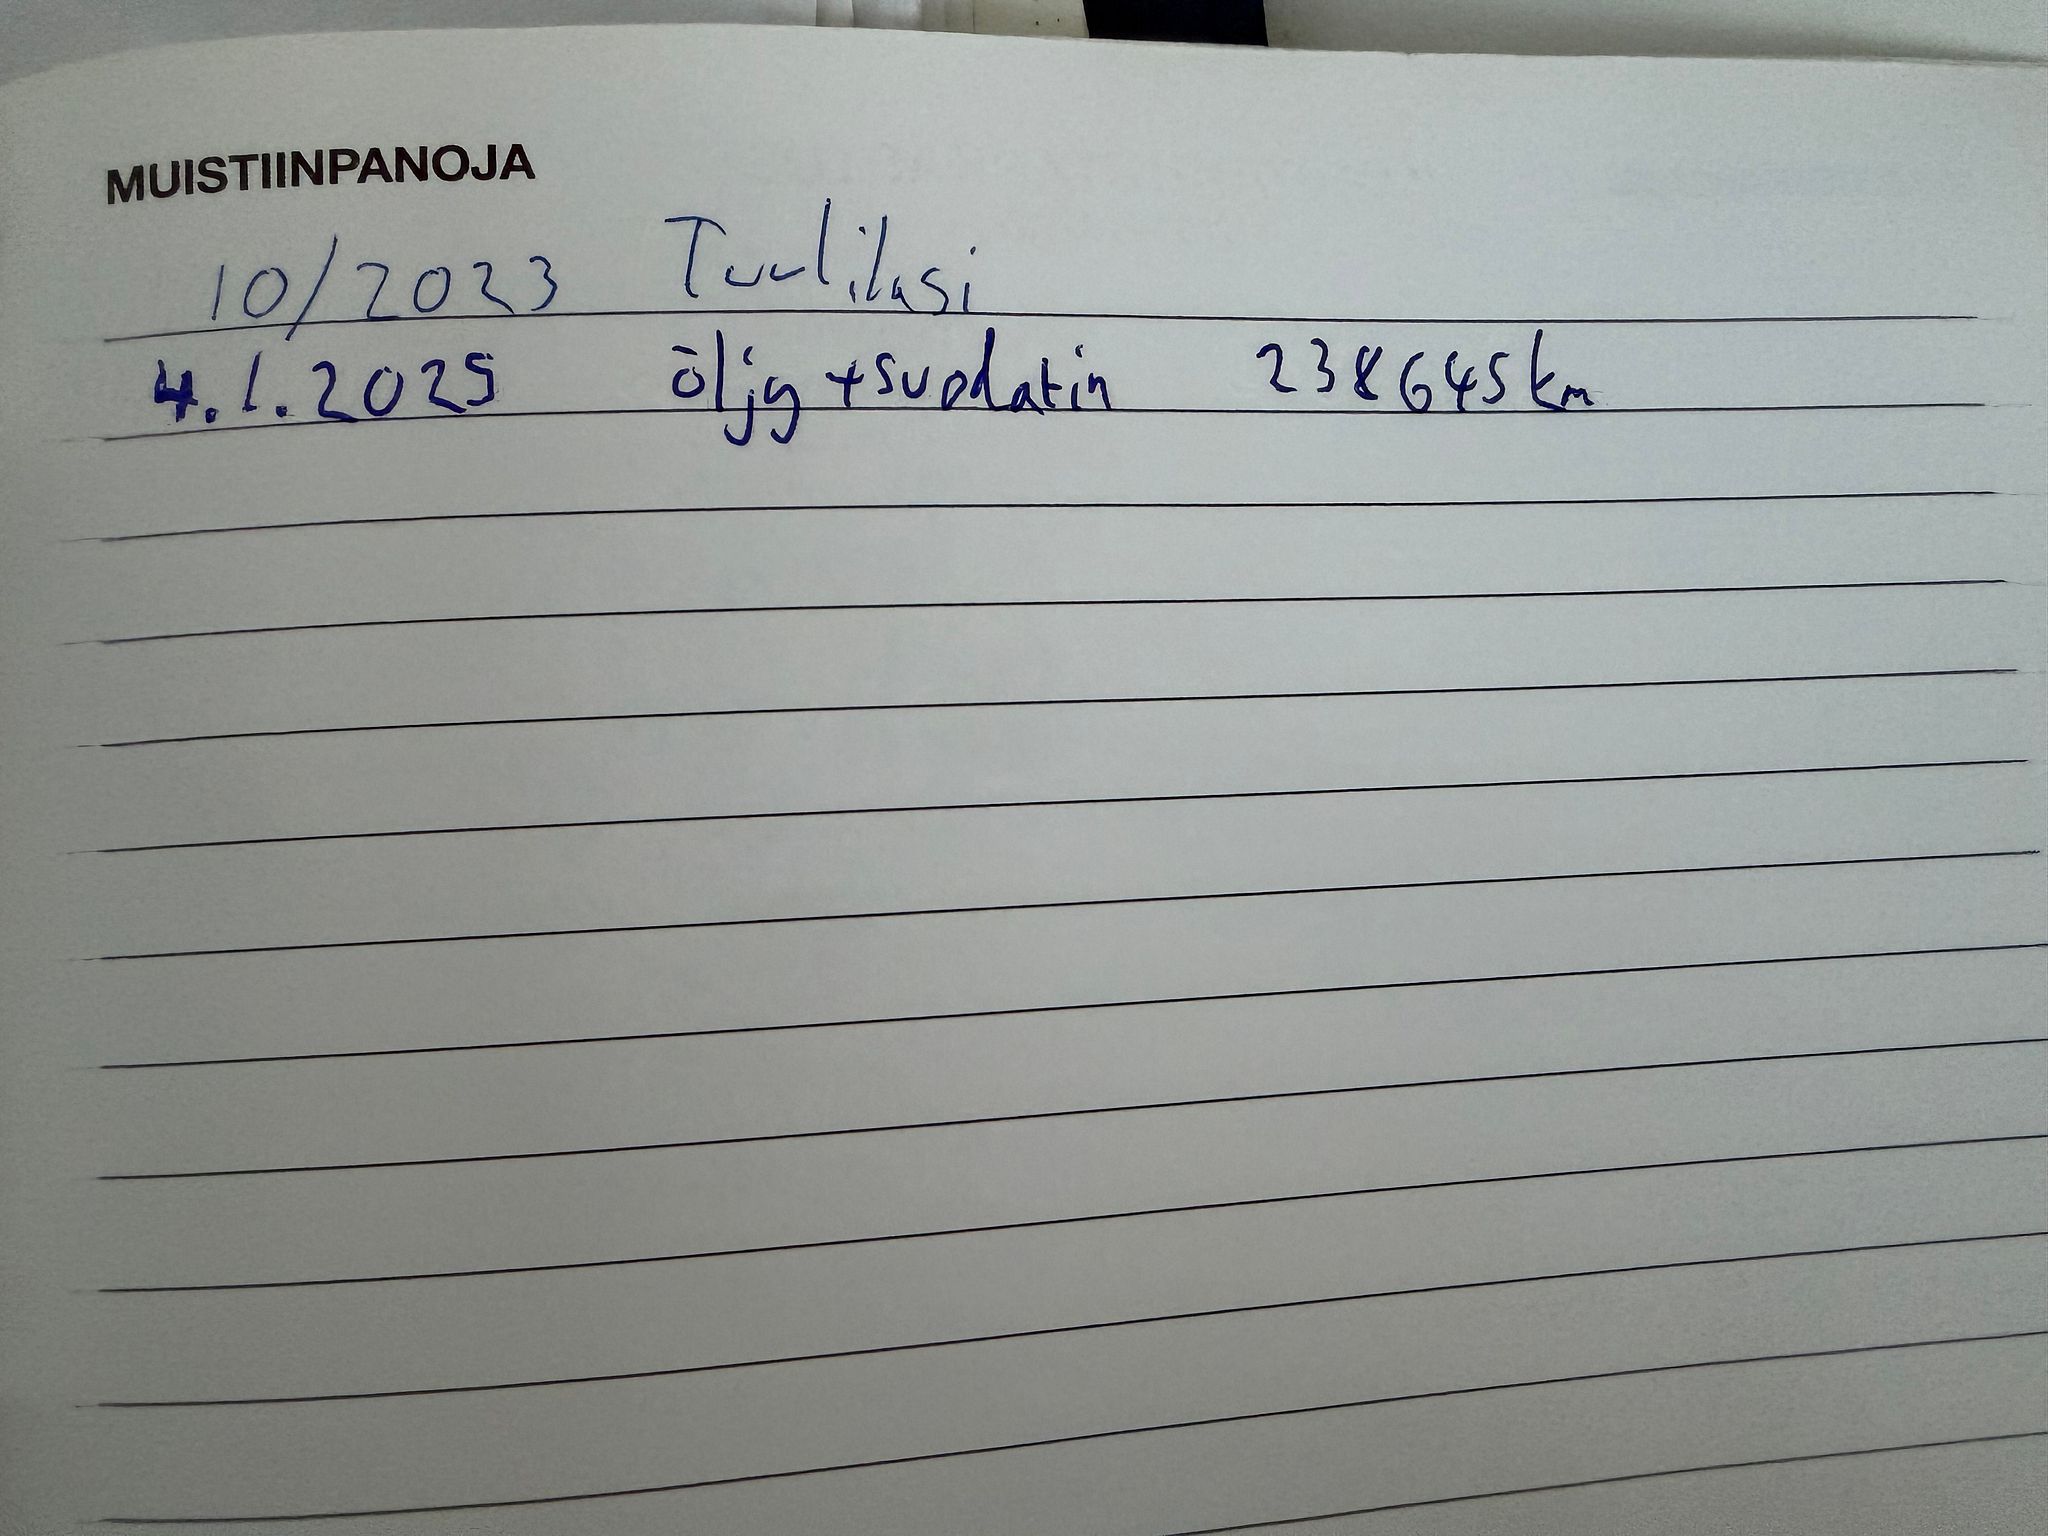 MUISTIINPANOJA
10/2023 Tuulilasi
4.1.2025 öljy + suodatin 238645 km